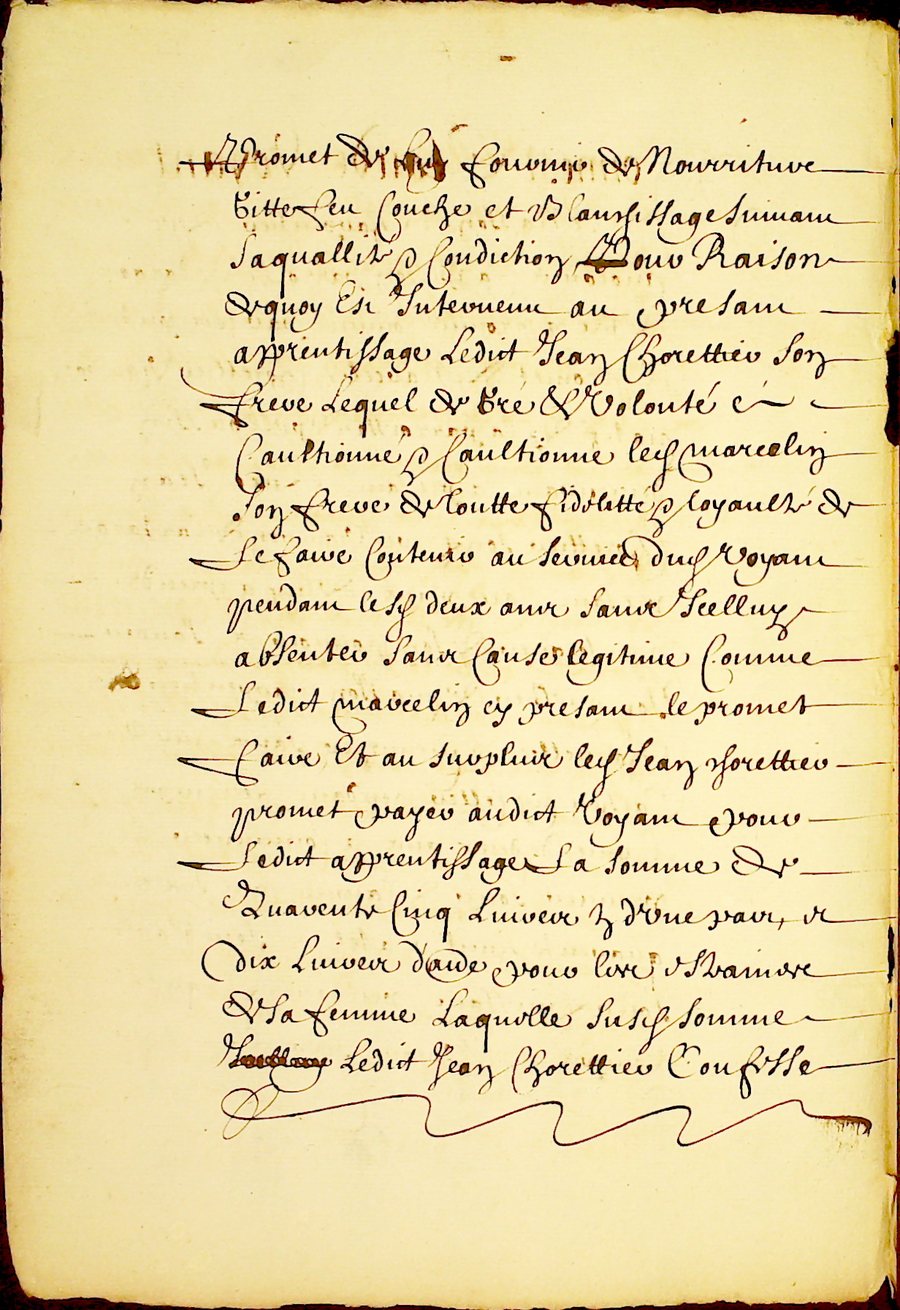 Promet de luy fournir de Nourriture
Gitte feu Couche et Blanchissage suivant
sa quallité & Condiction Pour Raison
de quoy Est Intervenu au presant
apprentissage Ledict Jean Chorettier son
frere Lequel de Gré & Volonté à
Caultionné & Caultionne led marcelin
son frere de toutte fidelitté & loyaulté de
Le faire Contenir au service dud Voyant
pendant lesd deux ans sans Icelluy
absenter sans Cause legitime Comme
Ledict marcelin cy presant le promet
faire Et au surplus led Jean chorettier
promet payer audict Voyant pour
Ledict apprentissage La somme de
Quarente Cinq Livres d'une part, et
dix Livres pour les
de sa femme Laquelle susd somme
Ledict Jean Chorettier Confesse